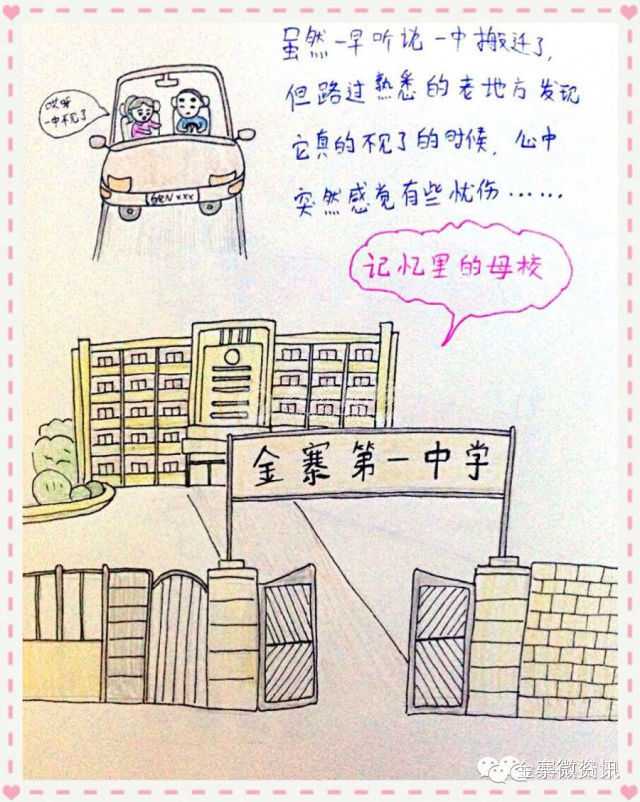 虽然一早听说一中搬迁了，
但路过熟悉的老地方发现
它真的不见了的时候，心中
突然感觉有些忧伤……
哎呀
一中不见了
皖N xxx
记忆里的母校
金寨第一中学
金寨微资讯